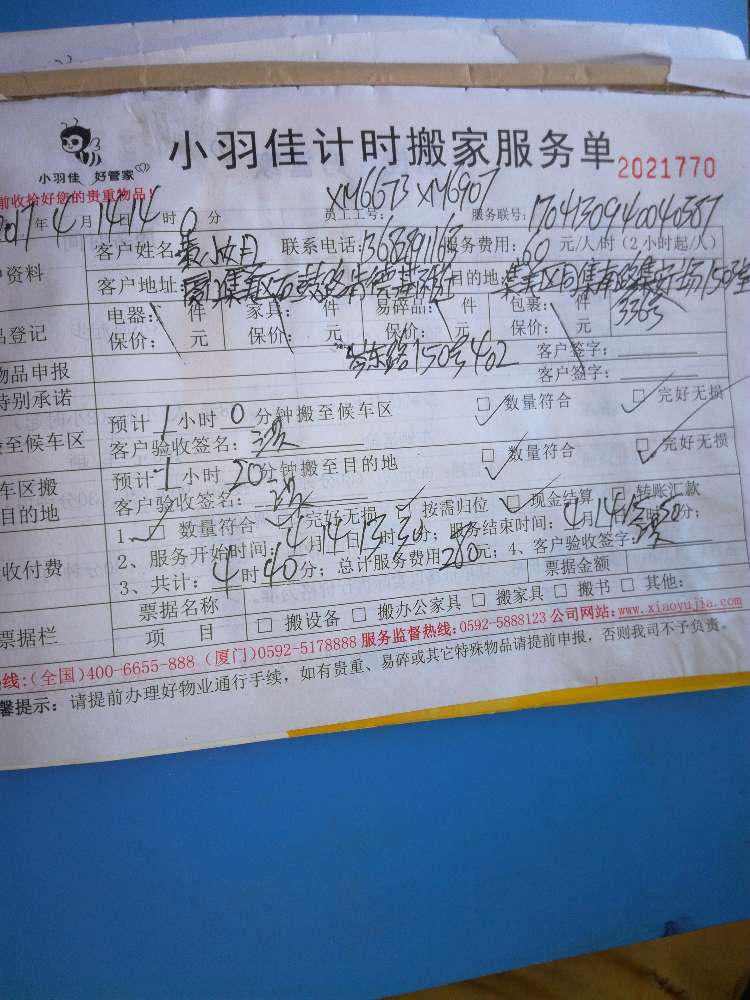 小羽佳计时搬家服务单 2021770
小羽佳 好管家
前收拾好您的贵重物品!
2017年4月14日14时0分 员工工号: XM6673 XM6907 服务联号: 17041309140040387
户资料 客户姓名: 联系电话: 服务费用: 60 元/人/时(2小时起/人)
客户地址: 目的地:
品登记 电器: 件 家具: 件 易碎品: 件 包裹: 件 336号
保价: 元 保价: 元 保价: 元 保价: 元
物品申报 岑东路150号402 客户签字:
特别承诺 客户签字:
般至候车区 预计1小时0分钟搬至候车区 □数量符合 □完好无损
客户验收签名:
车区搬目的地 预计1小时20分钟搬至目的地 □数量符合 □完好无损
客户验收签名:
收付费 1、□数量符合 □完好无损 □按需归位 □现金结算 □转账汇款
2、服务开始时间: 4月14日13时30分; 服务结束时间: 4月14日 时50分;
3、共计: 4时40分; 总计服务费用280元; 4、客户验收签字:
票据栏 票据名称 票据金额
项 目 □搬设备 □搬办公家具 □搬家具 □搬书 □其他:
线:(全国)400-6655-888 (厦门)0592-5178888 服务监督热线:0592-5888123 公司网站:www.xiaoyujia.com
馨提示: 请提前办理好物业通行手续,如有贵重、易碎或其它特殊物品请提前申报,否则我司不予负责。